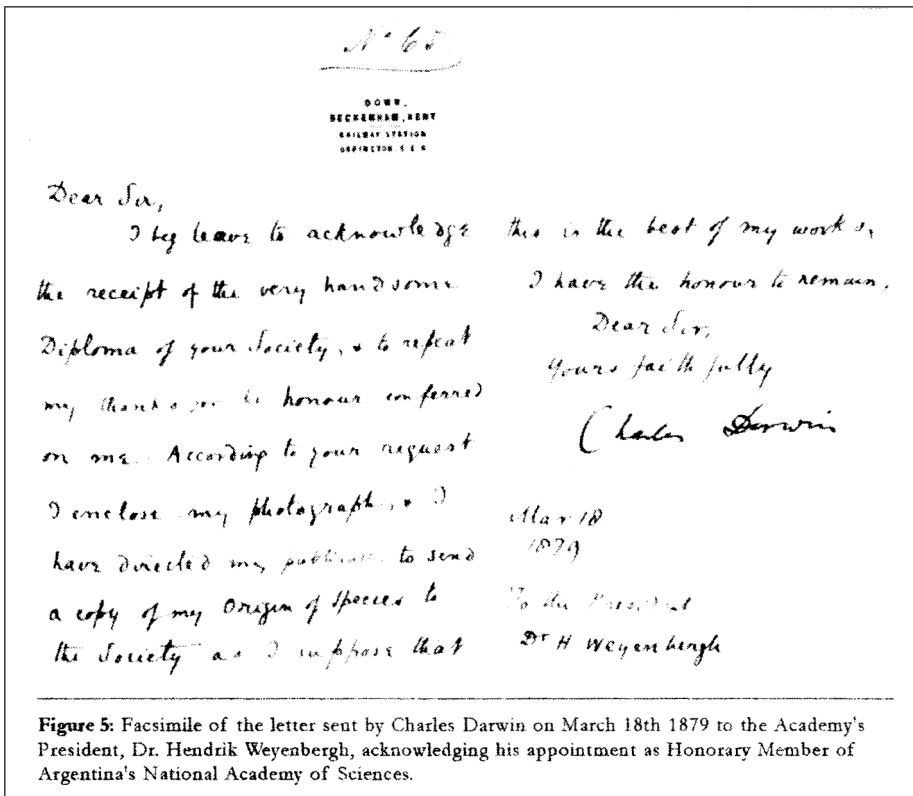 No 65
DOWN,
BECKENHAM, KENT
RAILWAY STATION
ORPINGTON. S.E.R.
Dear Sir,
I beg leave to acknowledge
the receipt of the very handsome
Diploma of your Society, & to repeat
my thanks for the honour conferred
on me. According to your request
I enclose my photograph, & I
have directed my publisher to send
a copy of my Origin of Species to
the Society as I suppose that
this is the best of my works.
I have the honour to remain.
Dear Sir,
Yours faithfully
Charles Darwin
Mar 18
1879
To the President
Dr H Weyenbergh
Figure 5: Facsimile of the letter sent by Charles Darwin on March 18th 1879 to the Academy's
President, Dr. Hendrik Weyenbergh, acknowledging his appointment as Honorary Member of
Argentina's National Academy of Sciences.